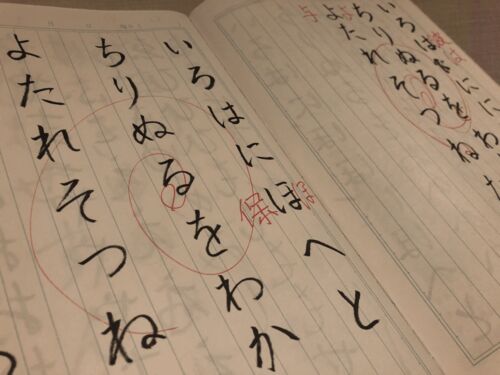 いろはに
ちりぬるをわ
よたれそつね
与
いろはにほへと
保
ほ
ちりぬるをわか
よたれそつね